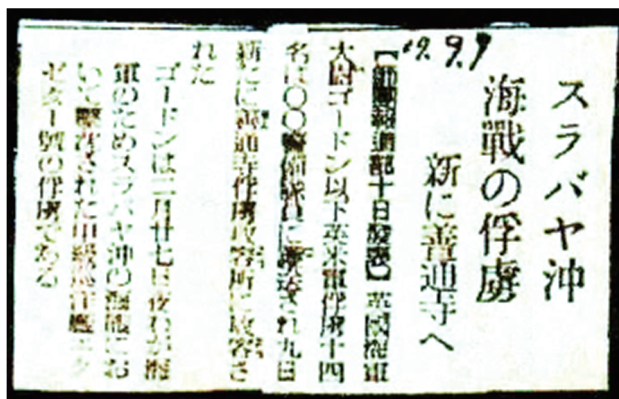 スラバヤ沖
海戰の俘虜
新に善通寺へ
9.9
【師團報道部十日發表】英國海軍
大尉ゴードン以下英米軍俘虜十四
名は〇〇警備隊員に護送され九日
新にに善通寺俘虜收容所に收容さ
れた
ゴードンは二月廿七日夜わが海
軍のためスラバヤ沖の海戰にお
いて撃沈された甲級巡洋艦エク
ゼター號の俘虜である